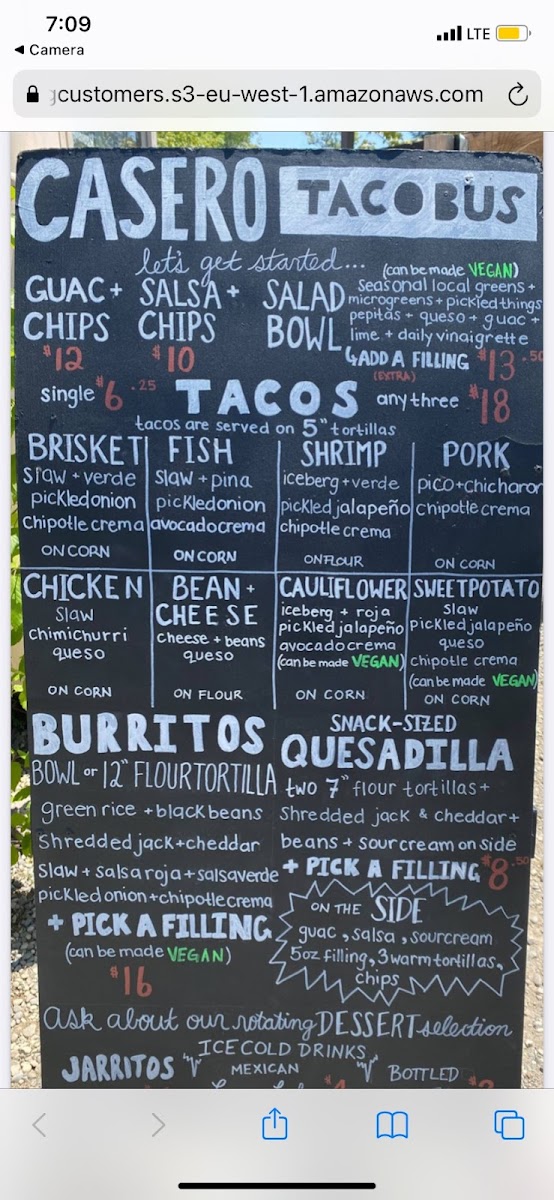 7:09
LTE
◀ Camera
customers.s3-eu-west-1.amazonaws.com
CASERO TACOBUS
let's get started...
(can be made VEGAN)
GUAC + CHIPS
$12
SALSA + CHIPS
$10
SALAD BOWL
seasonal local greens +
microgreens + pickled things
pepitas + queso + guac +
lime + daily vinaigrette
↳ADD A FILLING $13.50
(EXTRA)
single $6.25 TACOS any three $18
tacos are served on 5" tortillas
BRISKET
slaw + verde
pickled onion
chipotle crema
ON CORN
FISH
slaw + pina
pickled onion
avocado crema
ON CORN
SHRIMP
iceberg + verde
pickled jalapeño
chipotle crema
ON FLOUR
PORK
pico + chicharon
chipotle crema
ON CORN
CHICKEN
slaw
chimichurri
queso
ON CORN
BEAN +
CHEESE
cheese + beans
queso
ON FLOUR
CAULIFLOWER
iceberg + roja
pickled jalapeño
avocado crema
(can be made VEGAN)
ON CORN
SWEET POTATO
slaw
pickled jalapeño
queso
chipotle crema
(can be made VEGAN)
ON CORN
BURRITOS
BOWL or 12" FLOUR TORTILLA
green rice + black beans
shredded jack + cheddar
slaw + salsa roja + salsa verde
pickled onion + chipotle crema
+ PICK A FILLING
(can be made VEGAN)
$16
SNACK-SIZED
QUESADILLA
two 7" flour tortillas +
shredded jack & cheddar +
beans + sour cream on side
+ PICK A FILLING $8.50
ON THE SIDE
guac, salsa, sourcream
5oz filling, 3 warm tortillas,
chips
ask about our rotating DESSERT selection
ICE COLD DRINKS
JARRITOS
MEXICAN
BOTTLED